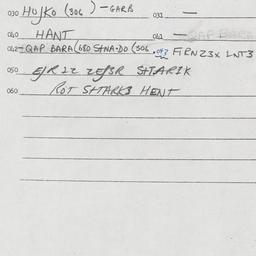 030 HUJKO (306) - GARB 031 —
040 HANT 041 —
042 - QAP BARA (680 SHNA-DO (306 .043 FIRN23X LNT3
050 EJR1Z ZEJ3R SHTARIK
060 ROT SHTARK3 HENT